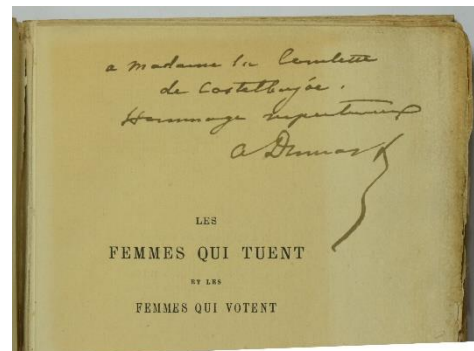 a Madame la Comtesse
de Castelbajac.
Hommage respectueux
A Dumas f
LES
FEMMES QUI TUENT
ET LES
FEMMES QUI VOTENT